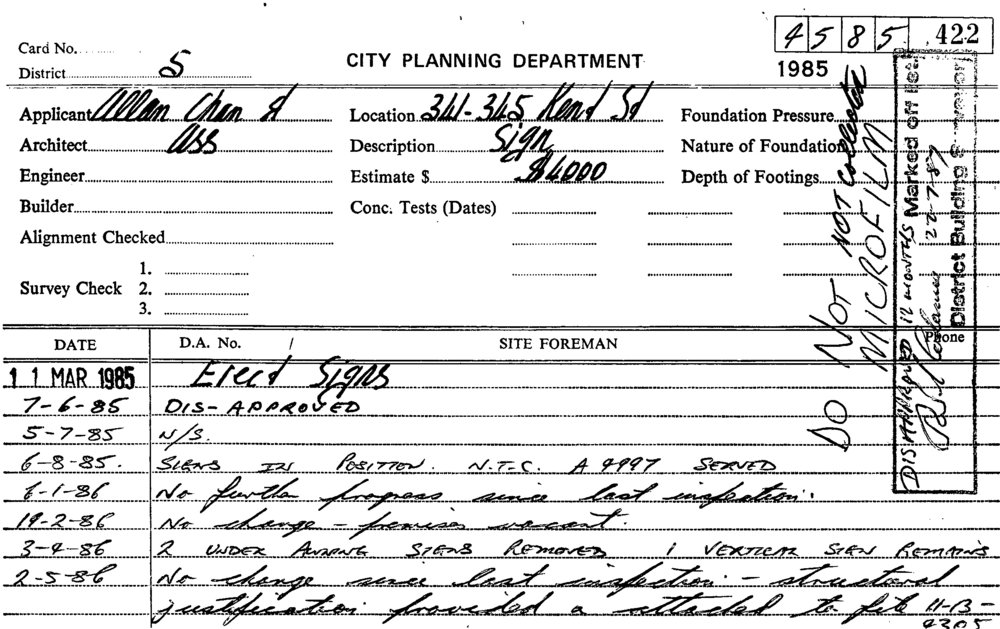 4 5 8 5 422
Card No.
District 5
CITY PLANNING DEPARTMENT
1985
Applicant Allan Chan &
Location 341-345 Kent St
Foundation Pressure
Architect Ass
Description Sign
Nature of Foundation
Engineer
Estimate $ $4000
Depth of Footings
Builder
Conc. Tests (Dates)
Alignment Checked
1.
Survey Check 2.
3.
DO NOT MICROFILM
NOT collected
DISAPPROVED 12 MONTHS Marked Off list
22-7-87
District Building Surveyor
DATE D.A. No. / SITE FOREMAN Phone
11 MAR 1985 Erect Signs
7-6-85 DIS-APPROVED
5-7-85 N/S.
6-8-85. SIGNS IN POSITION. N.T.C. A 4997 SERVED
6-1-86 No further progress since last inspection.
19-2-86 No change - premises vacant.
3-4-86 2 UNDER AWNING SIGNS REMOVED 1 VERTICAL SIGN REMAINS
2-5-86 No change since last inspection - structural
justification provided & attached to file 11-13-
4305